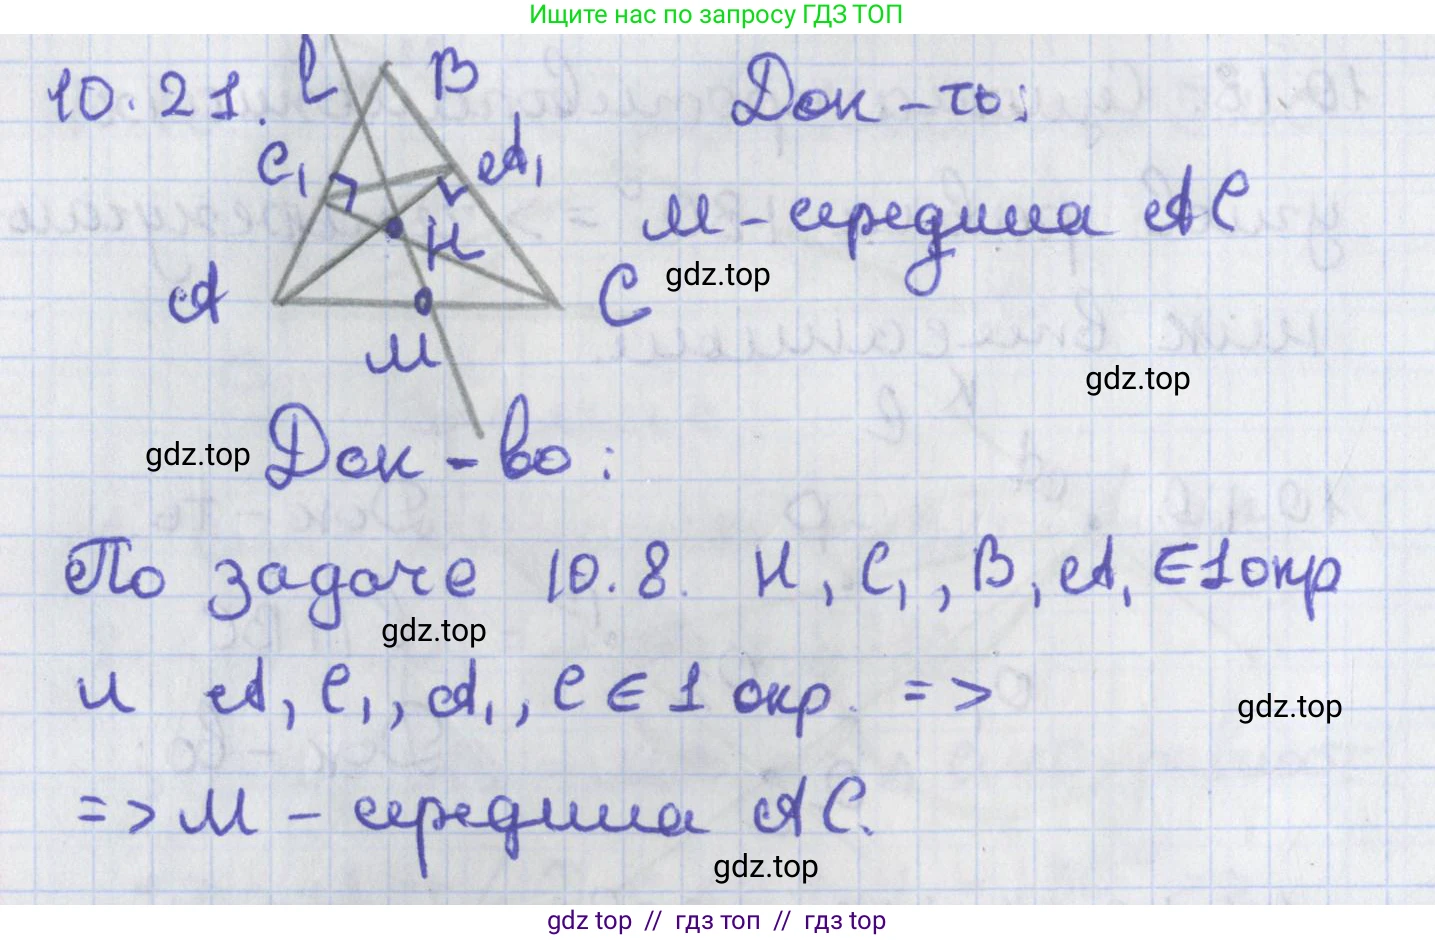 Ищите нас по запросу ГДЗ ТОП
10.21. l B Док-ть:
C₁ A₁
H M-середина AC
A C gdz.top
M
gdz.top
gdz.top Док-во:
По задаче 10.8. H, C₁, B, A₁ ∈ 1 окр
gdz.top
и A, C₁, A₁, C ∈ 1 окр. =>
gdz.top
=> M - середина AC.
gdz.top
gdz top // гдз топ // гдз top